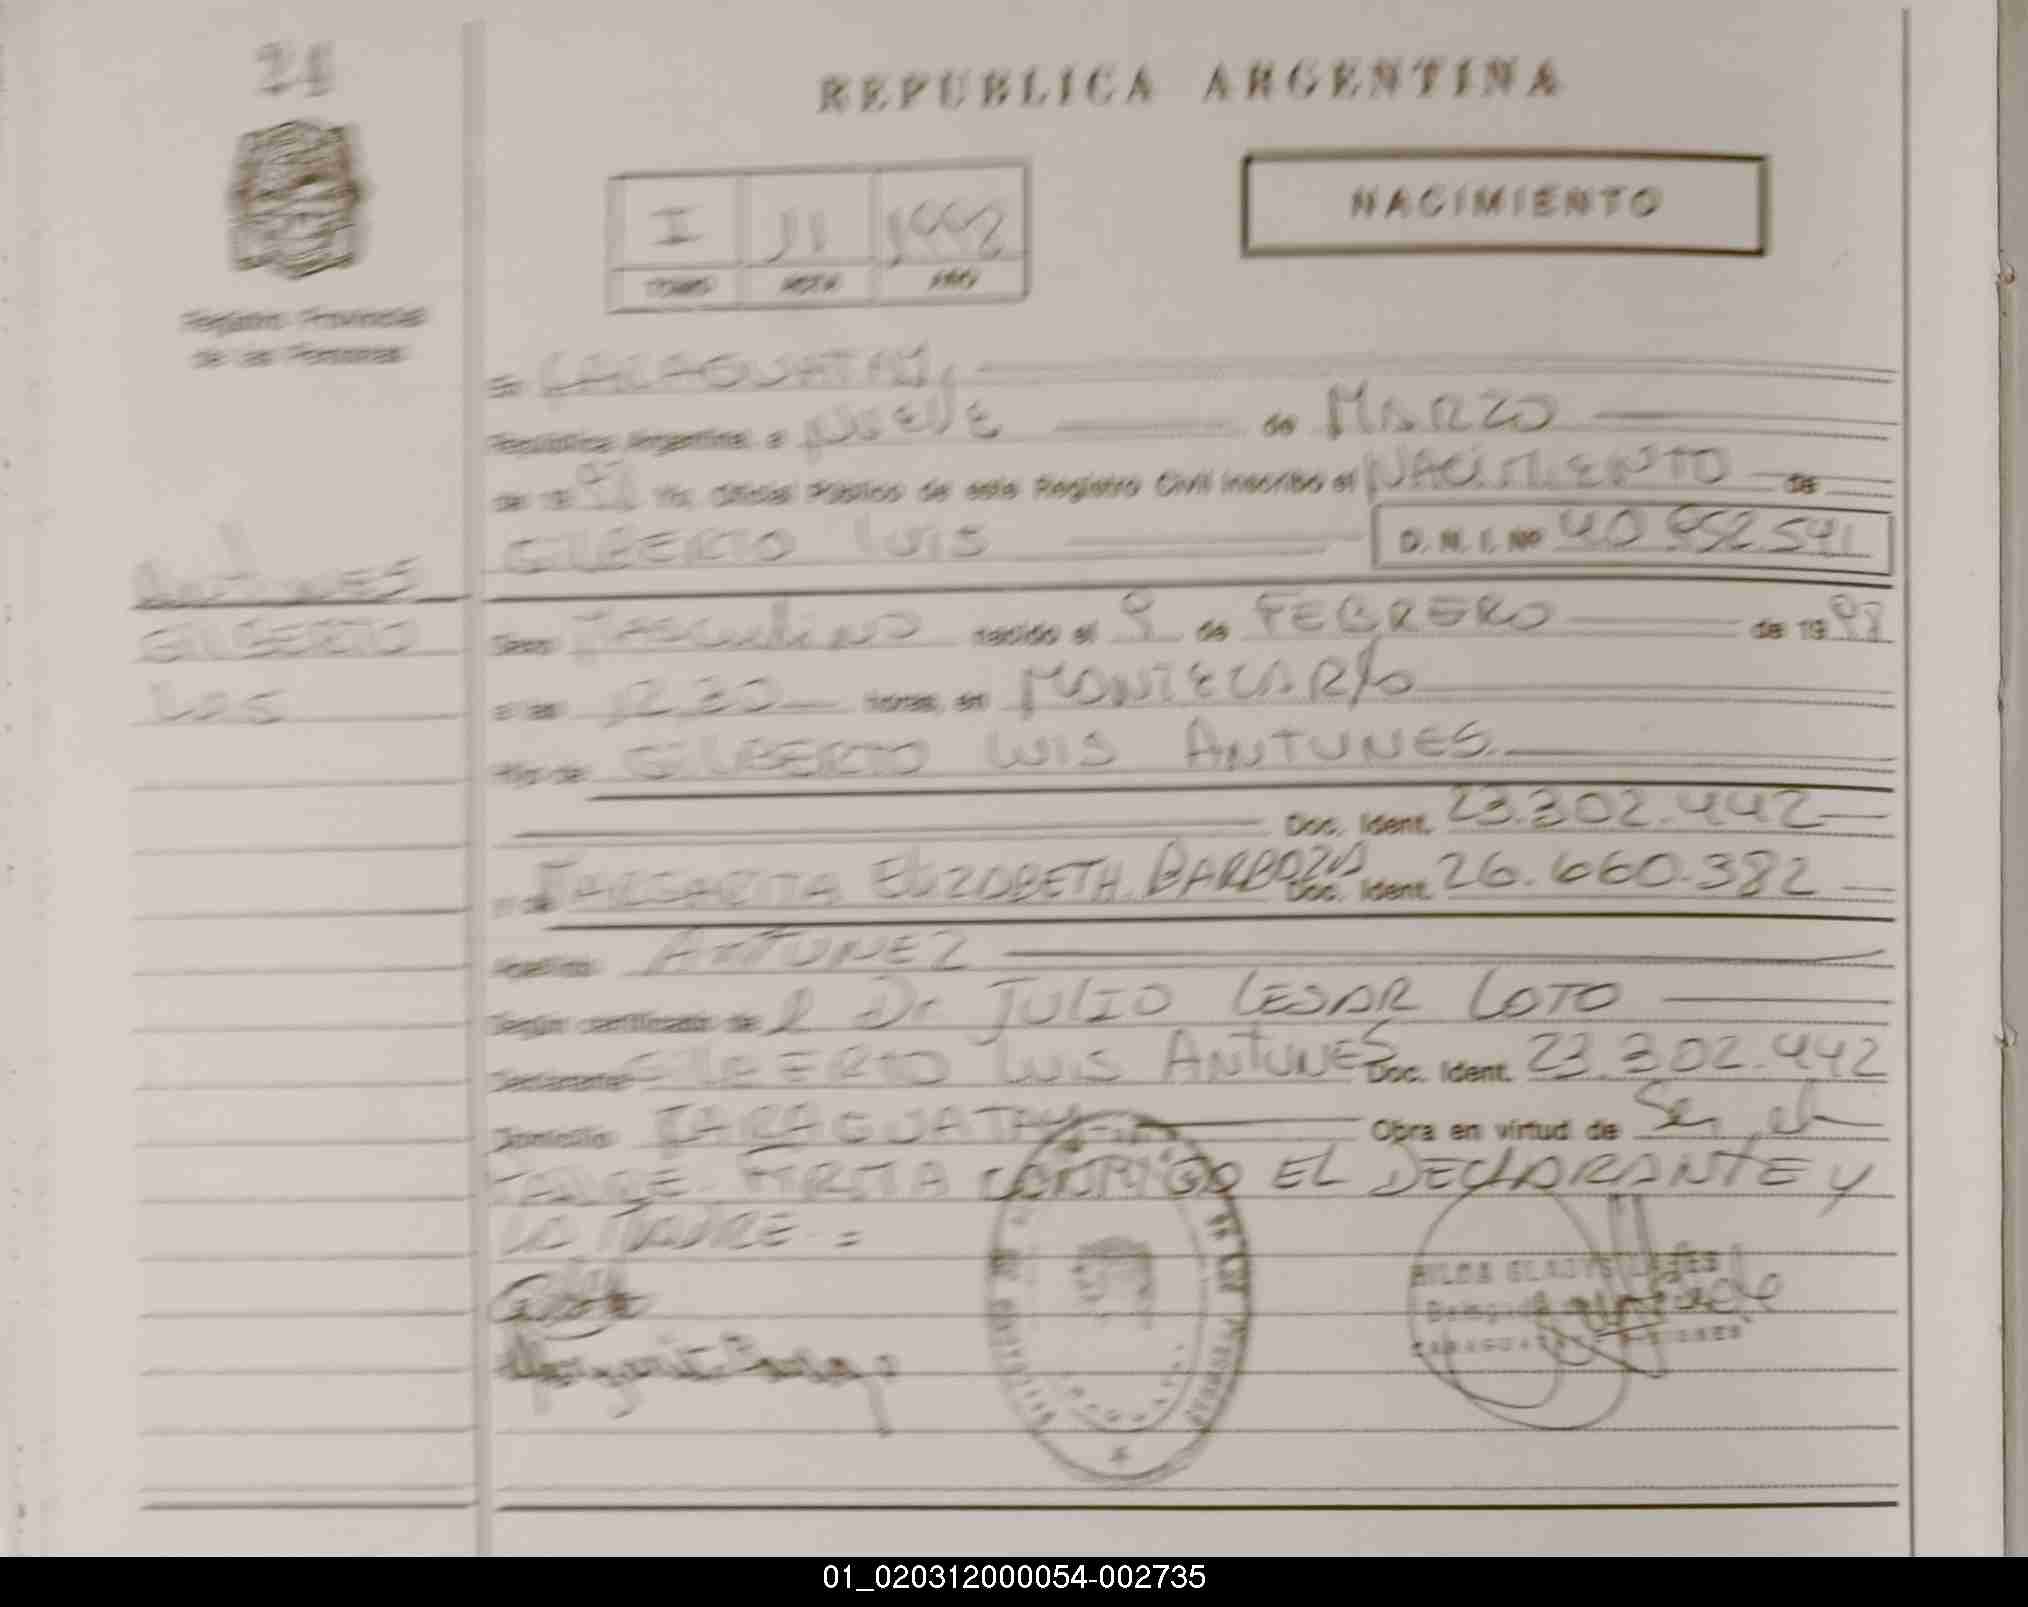 21
REPUBLICA ARGENTINA
NACIMIENTO
I 11 1998
TOMO ACTA AÑO
Registro Provincial
de las Personas
En CARAGUATAY,
República Argentina, a NUEVE de MARZO
de 19 98 Yo, Oficial Público de este Registro Civil inscribo el NACIMIENTO de
GILBERTO LUIS D. N. I. Nº 40.952.541
Antunes
GILBERTO
Luis
Sexo Masculino nacido el 9 de FEBRERO de 19 98
a las 12.30 horas, en MONTECARLO
Hijo de GILBERTO LUIS ANTUNES
Doc. Ident. 23.302.442
y de MARGARITA ELIZABETH BARBOZA Doc. Ident. 26.660.382
Apellido ANTUNEZ
Según certificado de l Dr JULIO CESAR LOTO
Declarante GILBERTO LUIS ANTUNES Doc. Ident. 23.302.442
Domicilio CARAGUATAY Obra en virtud de Ser el
PADRE. FIRMA CONMIGO EL DECLARANTE y
LA MADRE.=
HILDA GLADYS
CARAGUATAY MISIONES
01_020312000054-002735